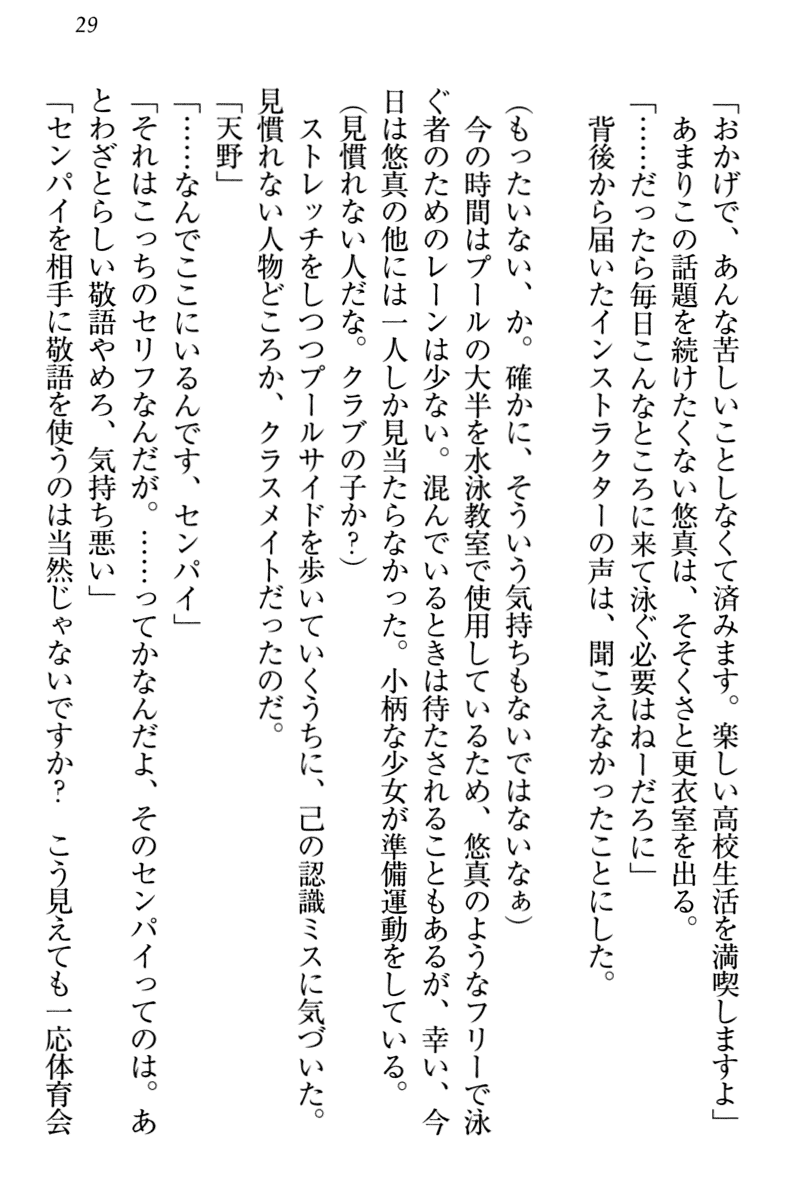 29
「おかげで、あんな苦しいことしなくて済みます。楽しい高校生活を満喫しますよ」
あまりこの話題を続けたくない悠真は、そそくさと更衣室を出る。
「……だったら毎日こんなところに来て泳ぐ必要はねーだろに」
背後から届いたインストラクターの声は、聞こえなかったことにした。
(もったいない、か。確かに、そういう気持ちもないではないなぁ)
今の時間はプールの大半を水泳教室で使用しているため、悠真のようなフリーで泳
ぐ者のためのレーンは少ない。混んでいるときは待たされることもあるが、幸い、今
日は悠真の他には一人しか見当たらなかった。小柄な少女が準備運動をしている。
(見慣れない人だな。クラブの子か?)
ストレッチをしつつプールサイドを歩いていくうちに、己の認識ミスに気づいた。
見慣れない人物どころか、クラスメイトだったのだ。
「天野」
「……なんでここにいるんです、センパイ」
「それはこっちのセリフなんだが。……ってかなんだよ、そのセンパイってのは。あ
とわざとらしい敬語やめろ、気持ち悪い」
「センパイを相手に敬語を使うのは当然じゃないですか? こう見えても一応体育会